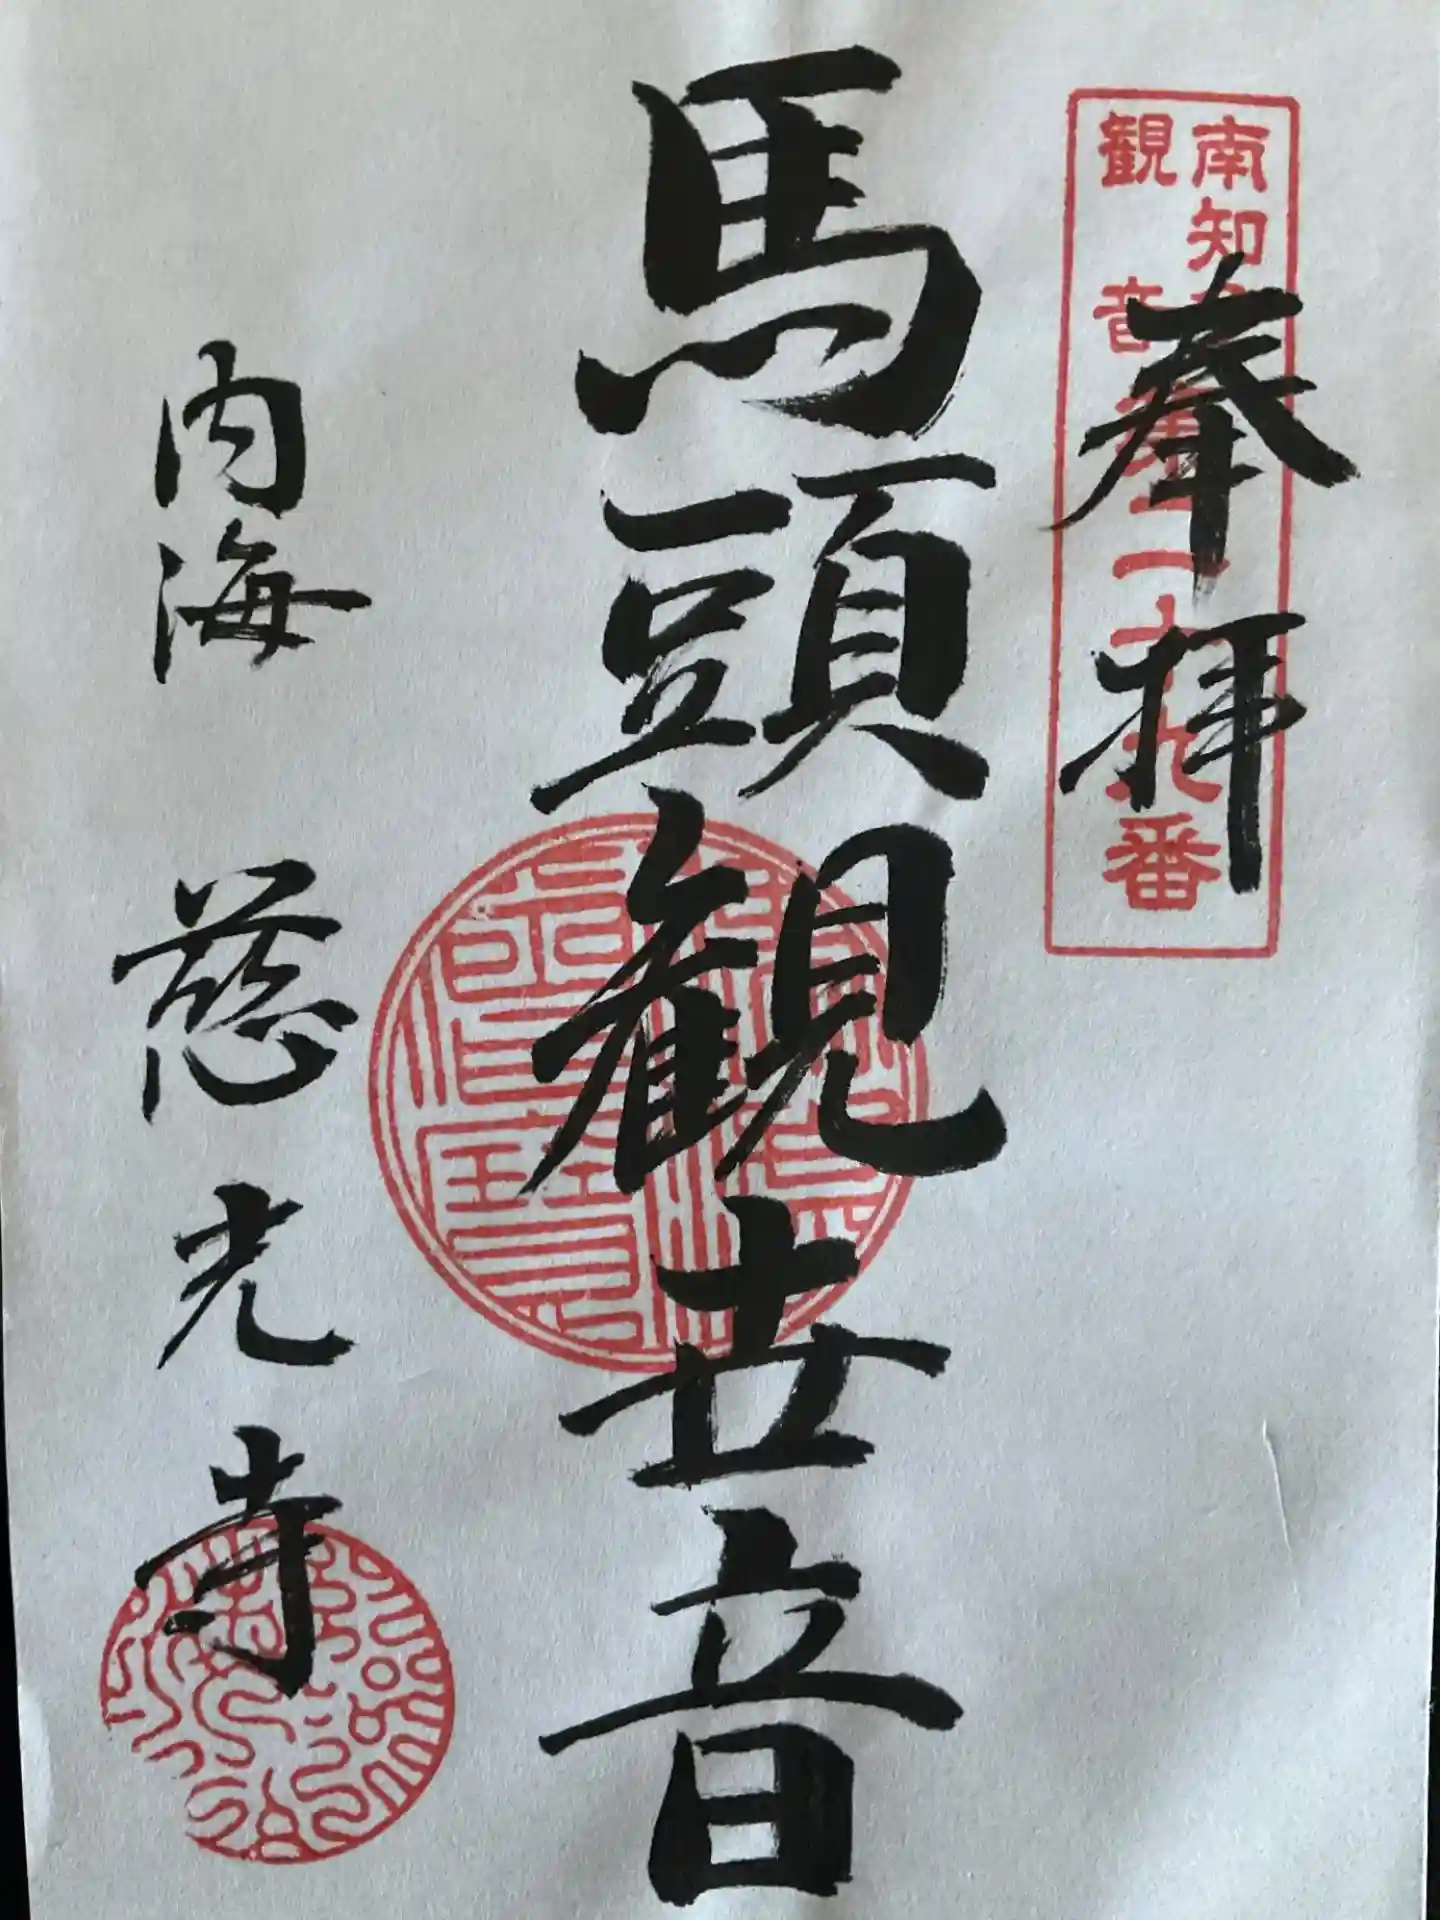 奉拝
南知多
観音第二十九番
馬頭観世音
内海 慈光寺